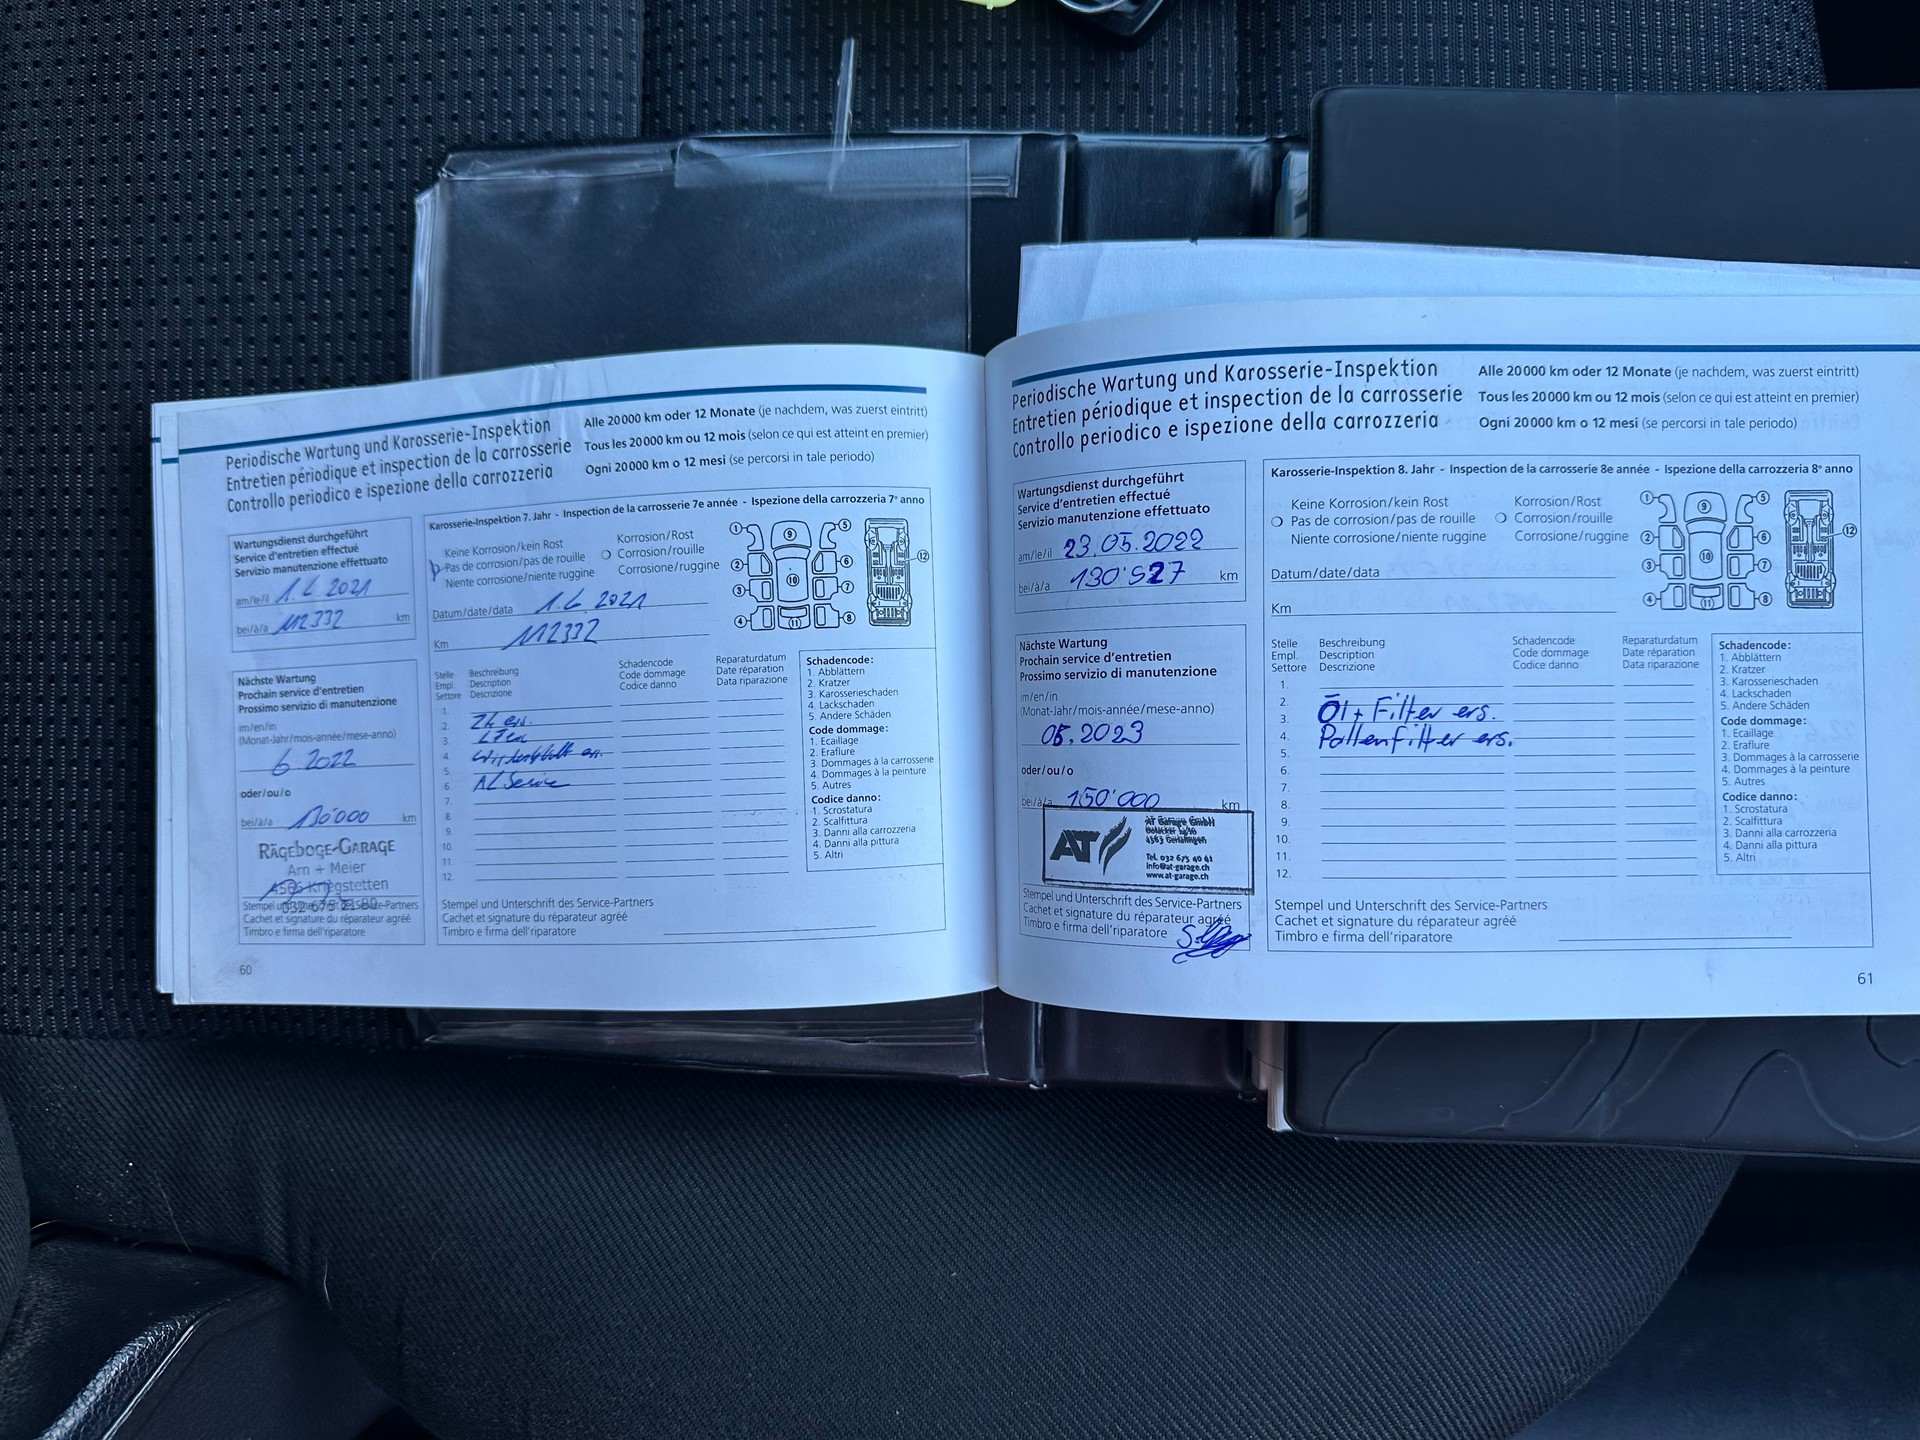 Periodische Wartung und Karosserie-Inspektion
Entretien périodique et inspection de la carrosserie
Controllo periodico e ispezione della carrozzeria
Alle 20 000 km oder 12 Monate (je nachdem, was zuerst eintritt)
Tous les 20 000 km ou 12 mois (selon ce qui est atteint en premier)
Ogni 20 000 km o 12 mesi (se percorsi in tale periodo)
Wartungsdienst durchgeführt
Service d'entretien effectué
Servizio manutenzione effettuato
am/le/il 1.6.2021
bei/à/a 112332 km
Nächste Wartung
Prochain service d'entretien
Prossimo servizio di manutenzione
im/en/in
(Monat-Jahr/mois-année/mese-anno)
6.2022
oder/ou/o
bei/à/a 130'000 km
RÄGEBOGE-GARAGE
Arn + Meier
4566 Kriegstetten
Stempel und Unterschrift des Service-Partners
Cachet et signature du réparateur agréé
Timbro e firma dell'riparatore
60
Karosserie-Inspektion 7. Jahr - Inspection de la carrosserie 7e année - Ispezione della carrozzeria 7° anno
Keine Korrosion/kein Rost
Pas de corrosion/pas de rouille
Niente corrosione/niente ruggine
Korrosion/Rost
Corrosion/rouille
Corrosione/ruggine
Datum/date/data 1.6.2021
Km 112332
1 2 3 4 5 6 7 8 9 10 11 12
Stelle Beschreibung Schadencode Reparaturdatum
Empl. Description Code dommage Date réparation
Settore Descrizione Codice danno Data riparazione
1.
2.
3.
4.
5.
6. Service
7.
8.
9.
10.
11.
12.
Schadencode:
1. Abblättern
2. Kratzer
3. Karosserieschaden
4. Lackschaden
5. Andere Schäden
Code dommage:
1. Ecaillage
2. Eraflure
3. Dommages à la carrosserie
4. Dommages à la peinture
5. Autres
Codice danno:
1. Scrostatura
2. Scalfittura
3. Danni alla carrozzeria
4. Danni alla pittura
5. Altri
Stempel und Unterschrift des Service-Partners
Cachet et signature du réparateur agréé
Timbro e firma dell'riparatore
Periodische Wartung und Karosserie-Inspektion
Entretien périodique et inspection de la carrosserie
Controllo periodico e ispezione della carrozzeria
Alle 20 000 km oder 12 Monate (je nachdem, was zuerst eintritt)
Tous les 20 000 km ou 12 mois (selon ce qui est atteint en premier)
Ogni 20 000 km o 12 mesi (se percorsi in tale periodo)
Wartungsdienst durchgeführt
Service d'entretien effectué
Servizio manutenzione effettuato
am/le/il 23.05.2022
bei/à/a 130'527 km
Nächste Wartung
Prochain service d'entretien
Prossimo servizio di manutenzione
im/en/in
(Monat-Jahr/mois-année/mese-anno)
05.2023
oder/ou/o
bei/à/a 150'000 km
AT
AT Garage GmbH
4563 Gerlafingen
Tel. 032 675 40 41
info@at-garage.ch
www.at-garage.ch
Stempel und Unterschrift des Service-Partners
Cachet et signature du réparateur agréé
Timbro e firma dell'riparatore
Karosserie-Inspektion 8. Jahr - Inspection de la carrosserie 8e année - Ispezione della carrozzeria 8° anno
Keine Korrosion/kein Rost
Pas de corrosion/pas de rouille
Niente corrosione/niente ruggine
Korrosion/Rost
Corrosion/rouille
Corrosione/ruggine
Datum/date/data
Km
1 2 3 4 5 6 7 8 9 10 11 12
Stelle Beschreibung Schadencode Reparaturdatum
Empl. Description Code dommage Date réparation
Settore Descrizione Codice danno Data riparazione
1.
2.
3. Öl + Filter ers.
4. Pollenfilter ers.
5.
6.
7.
8.
9.
10.
11.
12.
Schadencode:
1. Abblättern
2. Kratzer
3. Karosserieschaden
4. Lackschaden
5. Andere Schäden
Code dommage:
1. Ecaillage
2. Eraflure
3. Dommages à la carrosserie
4. Dommages à la peinture
5. Autres
Codice danno:
1. Scrostatura
2. Scalfittura
3. Danni alla carrozzeria
4. Danni alla pittura
5. Altri
Stempel und Unterschrift des Service-Partners
Cachet et signature du réparateur agréé
Timbro e firma dell'riparatore
61